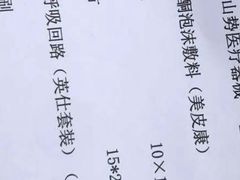 山势医疗器械
酮泡沫敷料（美皮康）
10×1
15*2
呼吸回路（英仕套装）（
别